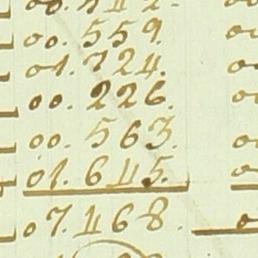 00. 559.
01. 724.
00. 226.
00. 563.
01. 645.
07. 468.